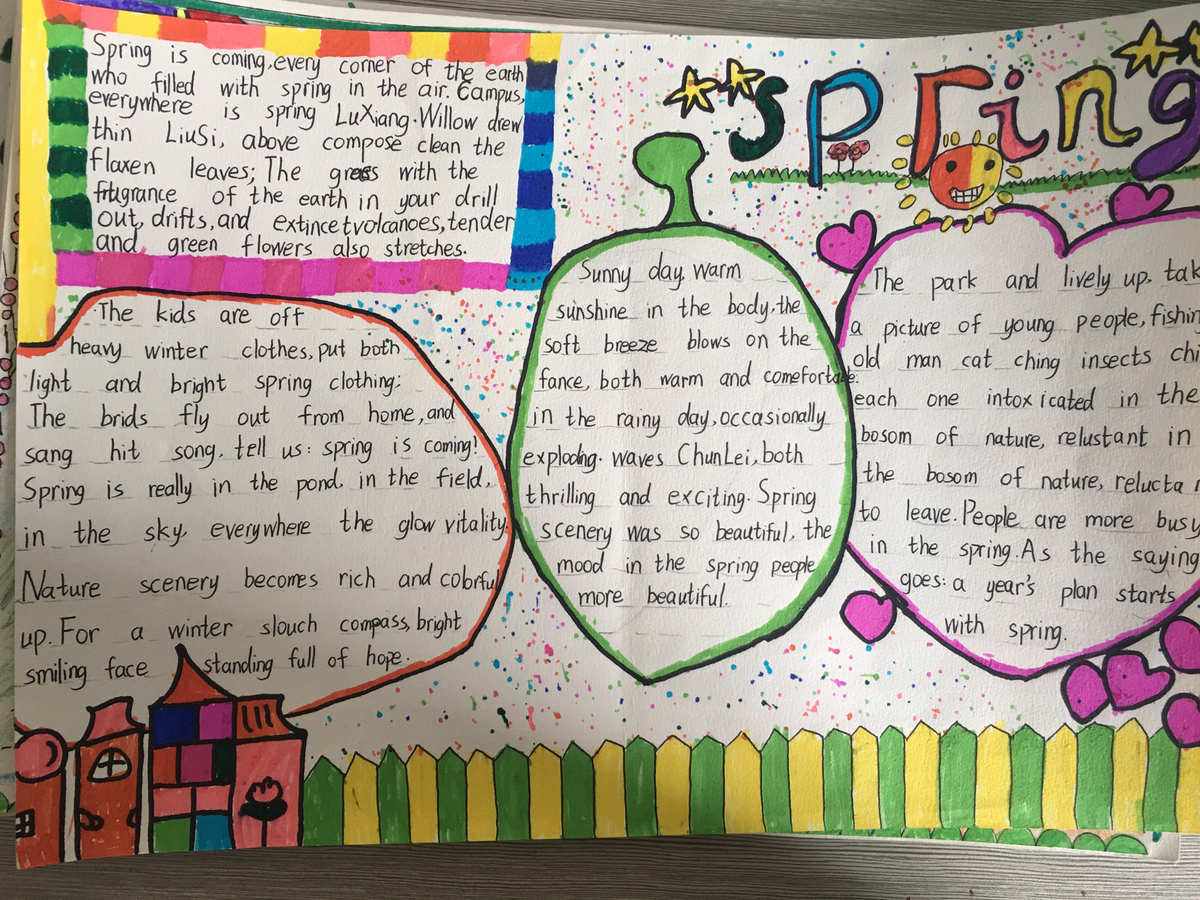 spring
Spring is coming, every corner of the earth
who filled with spring in the air. Campus,
everywhere is spring LuXiang. Willow drew
thin LiuSi, above compose clean the
flaxen leaves; The grass with the
fragrance of the earth in your drill
out, drifts, and extincetvolcanoes, tender
and green flowers also stretches.
The kids are off
heavy winter clothes, put both
light and bright spring clothing:
The brids fly out from home, and
sang hit song, tell us: spring is coming!
Spring is really in the pond, in the field,
in the sky, everywhere the glow vitality.
Nature scenery becomes rich and colorful
up. For a winter slouch compass, bright
smiling face standing full of hope.
Sunny day, warm
sunshine in the body, the
soft breeze blows on the
fance, both warm and comefortable.
in the rainy day, occasionally
exploding. waves ChunLei, both
thrilling and exciting. Spring
scenery was so beautiful, the
mood in the spring people
more beautiful.
The park and lively up, tak
a picture of young people, fishin
old man cat ching insects chi
each one intoxicated in the
bosom of nature, relustant in
the bosom of nature, relucta
to leave. People are more busy
in the spring. As the saying
goes: a year's plan starts
with spring.